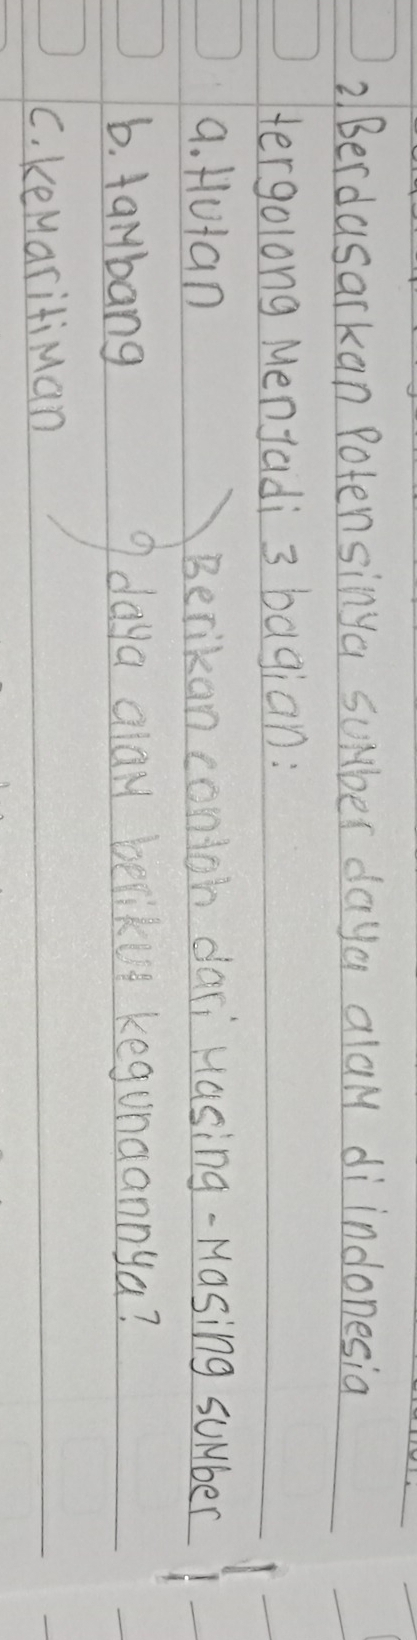 2. Berdasarkan Potensinya sumber daya alam di indonesia
tergolong Menjadi 3 bagian:
a. Hutan
b. tambang
c. keMaritiMan
Berikan contoh dari Masing-Masing sumber
daya alaM berikut kegunaannya?